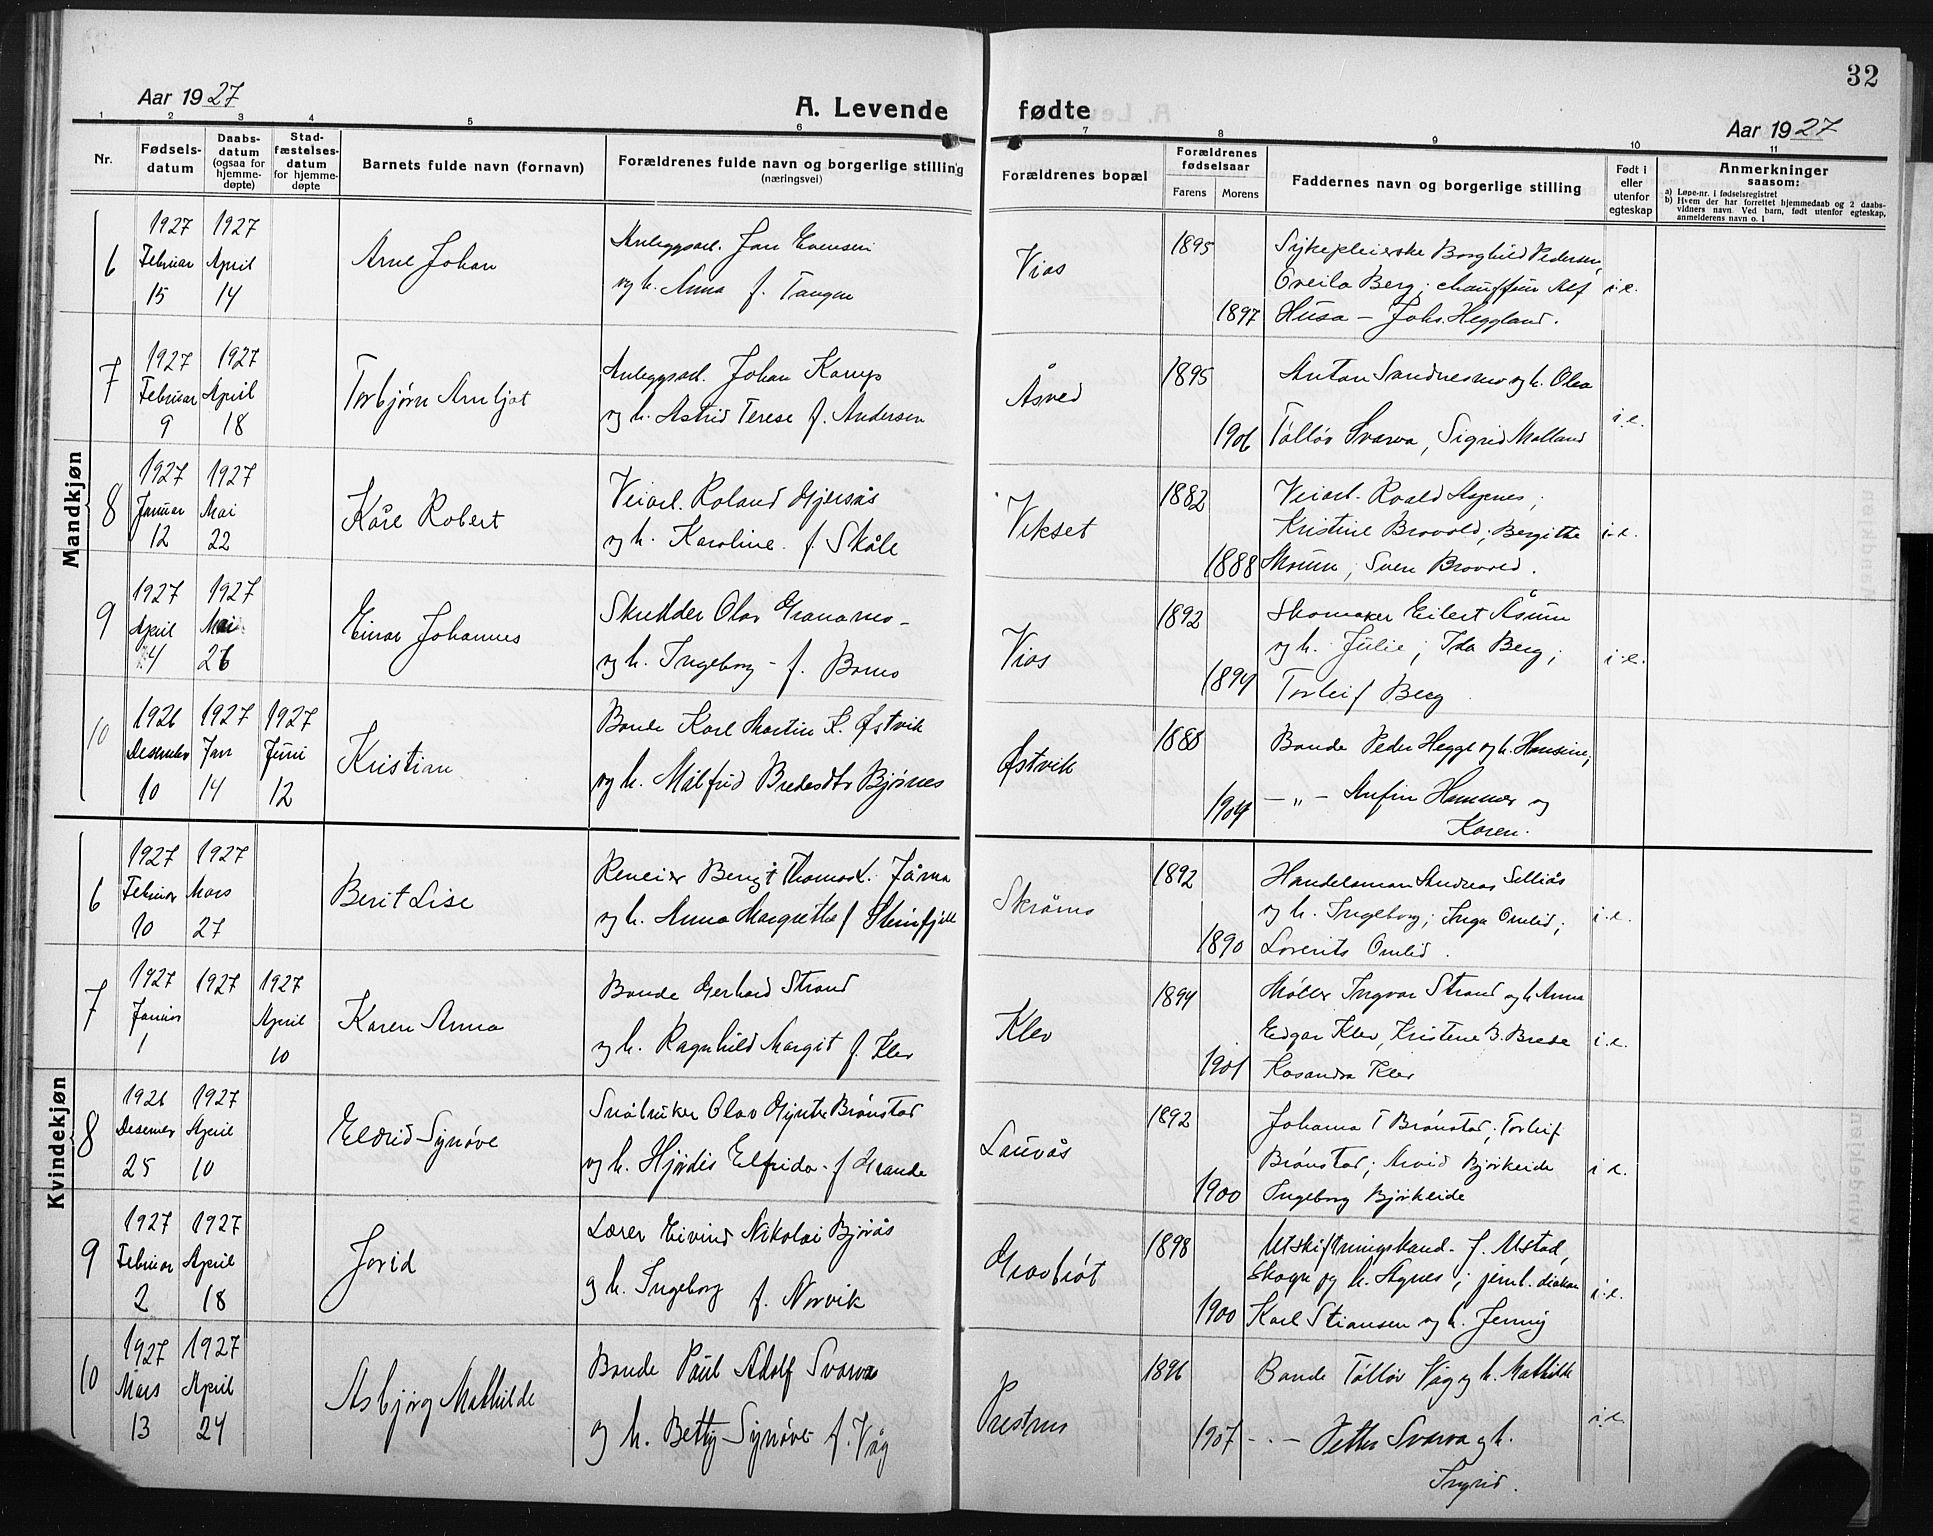 32
Aar 1927
A. Levende fødte
Aar 1927
1 2 3 4 5 6 7 8 9 10 11
Nr.
Fødsels-
datum
Daabs-
datum
(ogsaa for
hjemme-
døpte)
Stad-
fæstelses-
datum
for hjemme-
døpte
Barnets fulde navn (fornavn)
Forældrenes fulde navn og borgerlige stilling
(næringsvei)
Forældrenes bopæl
Forældrenes
fødselsaar
Farens Morens
Faddernes navn og borgerlige stilling
Født i
eller
utenfor
egteskap
Anmerkninger
saasom:
a) Løpe-nr. i fødselsregistret
b) Hvem der har forrettet hjemmedaab og 2 daabs-
vidners navn. Ved barn, født utenfor egteskap,
anmelderens navn o. l
Mandkjøn
6
1927 Februar 15
1927 April 14
Arne Johan
Anleggsarb. Jon Evensen
og h. Anna f. Tangen
Vias
1895
1897
Sykepleierske Borghild Pedersen,
Berg; chauffør Alf
Husa - Johs. Heggland.
i.e.
7
1927 Februar 9
1927 April 18
Torbjørn Arnljot
Anleggsarb. Johan Kamp
og h. Astrid Terese f. Andersen
Åsved
1895
1906
Anton Sandnesmo og h. Olea
Tolløv Svarva, Sigrid Malland
i.e.
8
1927 Januar 12
1927 Mai 22
Kåre Robert
Veiarb. Roland Gjersås
og h. Karoline. f. Skåle
Vikset
1882
1888
Veiarb. Roald Agnes;
Kristine Brovold; Bergithe
Moum; Sven Brovold.
i.e.
9
1927 April 4
1927 Mai 26
Einar Johannes
Skredder Olav Granamo-
og h. Ingeborg - f. Bomo
Vias
1892
1894
Skomaker Eilert Åsum
og h. Julie; Ida Berg;
Torleif Berg
i.e.
10
1926 Desember 10
1927 Jan 14
1927 Juni 12
Kristian
Bonde Karl Martin K. Østvik
og h. Målfrid Bredesdtr Bjørnes
Østvik
1888
1904
Bonde Peder Hegge og h. Hansine;
- " - Anfin Hammer og
Karen.
Kvindekjøn
6
1927 Februar 10
1927 Mars 27
Berit Lise
Reneier Bengt Thomas L. Jåma
og h. Anna Margrethe f Steinfjell
Skråmo
1892
1890
Handelsman Andreas Selliås
og h. Ingeborg; Inga Omlid;
Lorents Omlid.
i.e.
7
1927 Januar 1
1927
1927 April 10
Karen Anna
Bonde Gerhard Strand
og h. Ragnhild Margit f. Klev
Klev
1894
1901
Møller Ingvar Strand og h Anna
Edgar Klev, Kristene B. Brede
Kasandra Klev
i.e.
8
1926 Desember 25
1927 April 10
Eldrid Synøve
Småbruker Olav Gynther Brønstad
og h. Hjørdis Elfrida - f Grande
Lauvås
1892
1900
Johanna T Brønstad; Torleif
Brønstad; Arvid Bjørkeide
Ingeborg Bjørkeide
i.e.
9
1927 Februar 2
1927 April 18
Jorid
Lærer Eivind Nikolai Bjørås
og h. Ingeborg f. Norvik
Gravbrøt
1898
1900
Utskiftningskand. J. Alstad,
Skogn og h. Agnes; jernb.
Karl Stiansen og h. Jenny
i.e.
10
1927 Mars 13
1927 April 24
Asbjørg Mathilde
Bonde Paul Adolf Svarva
og h. Betty Synøve f. Våg
Prestmo
1896
1907
Bonde Tolløv Våg og h. Mathilde
- . - Petter Svarva og h.
Ingrid.
i.e.